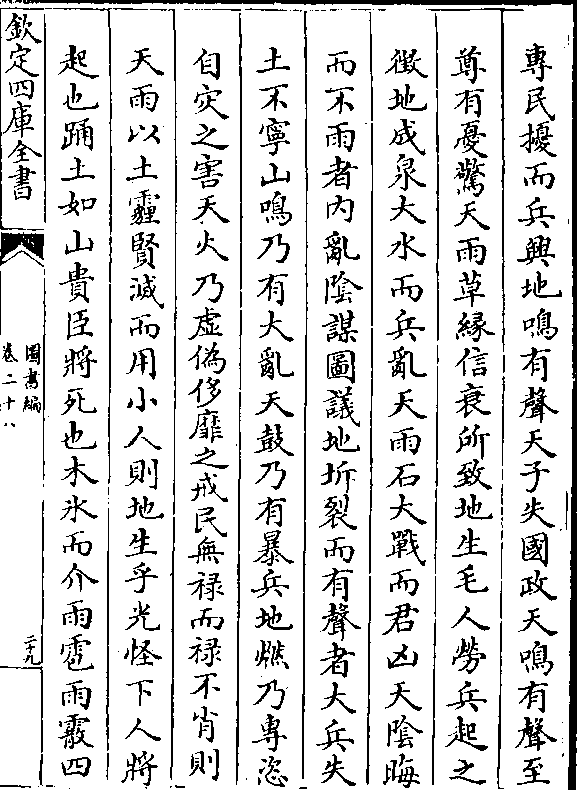 專民擾而兵興地鳴有聲天子失國政天鳴有聲至
尊有憂驚天雨草緣信衰所致地生毛人勞兵起之
徴地成泉大水而兵亂天雨石大戰而君凶天陰晦
而不雨者內亂陰謀圖議地坼裂而有聲者大兵失
土不寧山鳴乃有大亂天鼓乃有暴兵地燃乃專恣
自災之害天火乃虛偽侈靡之戒民無祿而禄不肖則
天雨以土霾賢滅而用小人則地生乎光怪下人將
起也踊土如山貴臣將死也木氷而介雨雹雨霰四
欽定四庫全書
圖書編
卷二十八
二十九